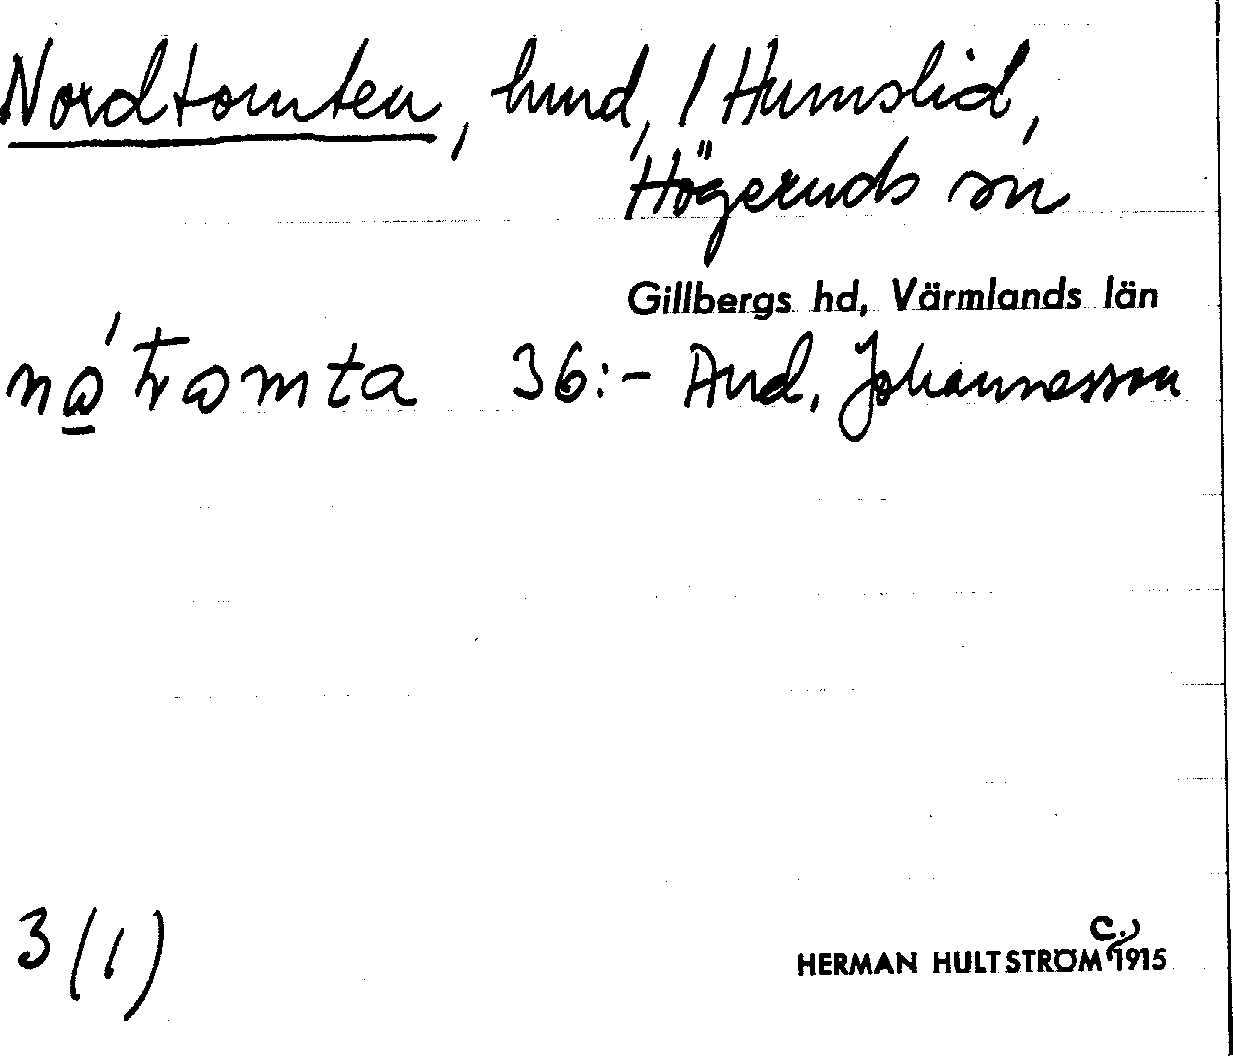 Nordtomten, lund, / Humslid,
Högeruds sn
Gillbergs hd, Värmlands län
36:- And. Johannesson
3 (1)
HERMAN HULTSTRÖM C. 1915